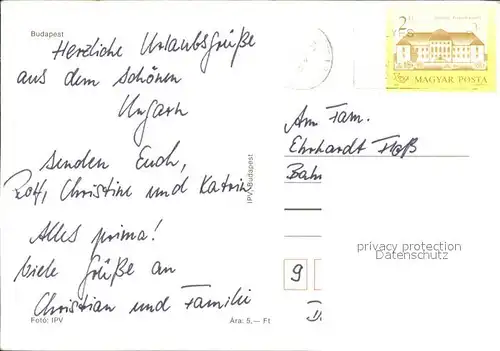 Budapest
Herzliche Urlaubsgrüße
aus dem schönen
Ungarn
senden Euch,
Rolf, Christine und Katrin
Alles prima!
viele Grüße an
Christian und Familie
Foto: IPV
Ára: 5,— Ft
IPV-Budapest
2 Ft
MAGYAR POSTA
An Fam.
Ehrhardt
Bahn
9
privacy protection
Datenschutz